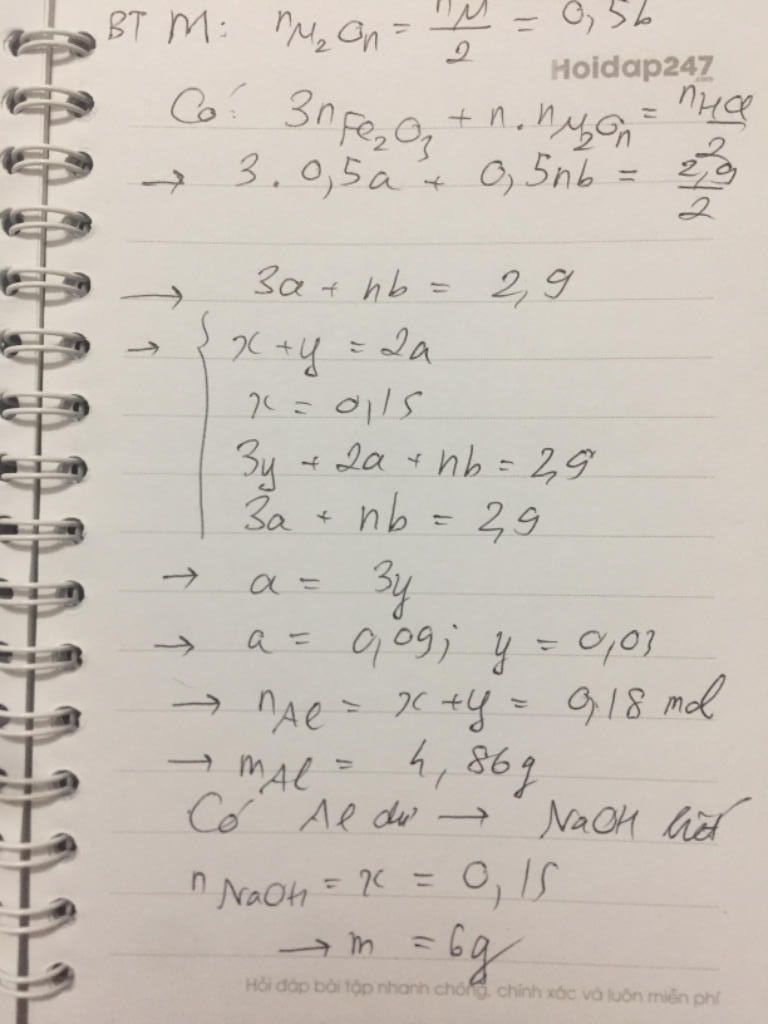 BT M: nM₂On = nM/2 = 0,5b
Hoidap247.com
Có: 3nFe₂O₃ + n.nM₂On = nHCl/2
→ 3.0,5a + 0,5nb = 2,9/2
→ 3a + nb = 2,9
→ { x + y = 2a
x = 0,15
3y + 2a + nb = 2,9
3a + nb = 2,9
→ a = 3y
→ a = 0,09; y = 0,03
→ nAl = x + y = 0,18 mol
→ mAl = 4,86g
Có Al dư → NaOH hết
nNaOH = x = 0,15
→ m = 6g
Hỏi đáp bài tập nhanh chóng, chính xác và luôn miễn phí